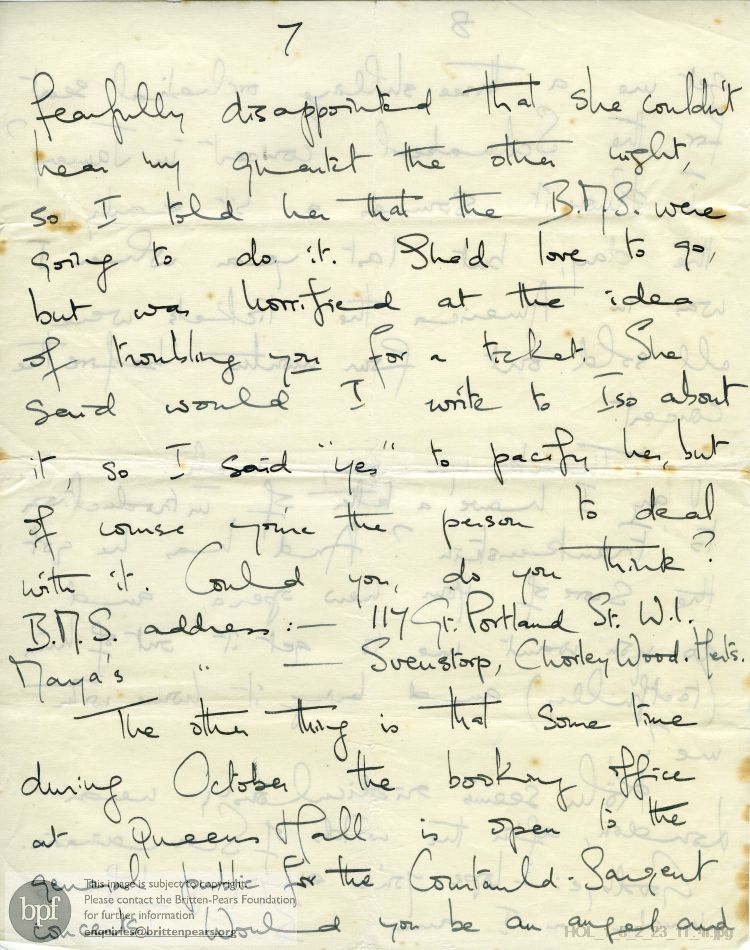 7
fearfully disappointed that she couldn't
hear my quartet the other night,
so I told her that the B.M.S. were
going to do it. She'd love to go,
but was horrified at the idea
of troubling you for a ticket. She
said would I write to Iso about
it, so I said "yes" to pacify her, but
of course you're the person to deal
with it. Could you, do you think?
B.M.S. address :— 117 Gt. Portland St. W.1.
Marya's " — Svenstorp, Chorley Wood. Herts.
The other thing is that some time
during October the booking office
at Queens Hall is open to the
general public for the Courtauld-Sargent
concerts. Would you be an angel and
bpf
This image is subject to copyright.
Please contact the Britten-Pears Foundation
for further information
enquiries@brittenpears.org